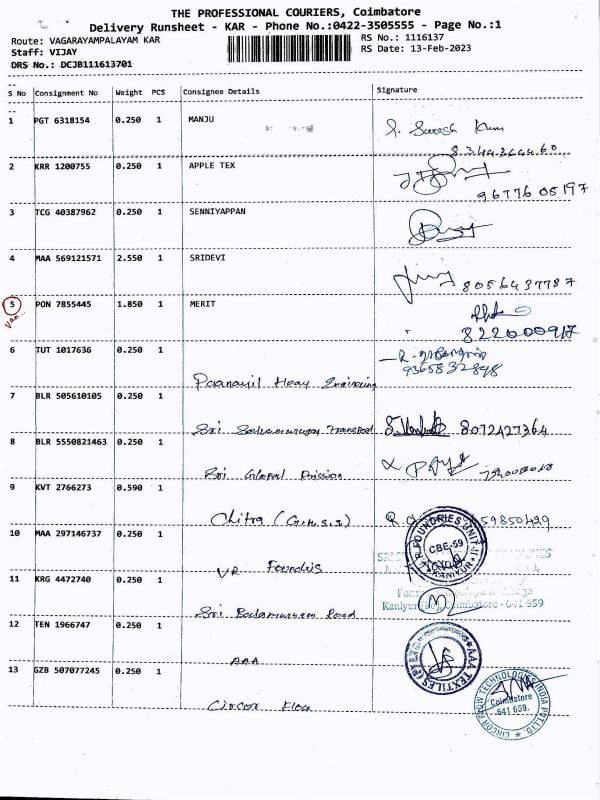 THE PROFESSIONAL COURIERS, Coimbatore
Delivery Runsheet - KAR - Phone No.:0422-3505555 - Page No.:1
Route: VAGARAYAMPALAYAM KAR RS No.: 1116137
Staff: VIJAY RS Date: 13-Feb-2023
DRS No.: DCJB111613701
S No Consignment No Weight PCS Consignee Details Signature
1 PGT 6318154 0.250 1 MANJU
S. Suresh Kum
2 KRR 1200755 0.250 1 APPLE TEX
96776 05197
3 TCG 40387962 0.250 1 SENNIYAPPAN
4 MAA 569121571 2.550 1 SRIDEVI
8056437787
5 PON 7855445 1.850 1 MERIT
Van
822000917
6 TUT 1017636 0.250 1
9365832898
Heavy Engineering
7 BLR 505610105 0.250 1
Sri Transport 8072427364
8 BLR 5550821463 0.250 1
Sri Global
9 KVT 2766273 0.590 1
Chitra (G.H.S.S) 59850429
10 MAA 297146737 0.250 1
R FOUNDRIES UNIT-II
CBE-59
KANIYUR
VR Foundris
11 KRG 4472740 0.250 1
Coimbatore - 641 659
Sri Food
12 TEN 1966747 0.250 1
AAA
AAA TEXTILES (P)
13 GZB 507077245 0.250 1
Circor Flow
CIRCOR FLOW TECHNOLOGIES INDIA PVT LTD.
Coimbatore
641 659.